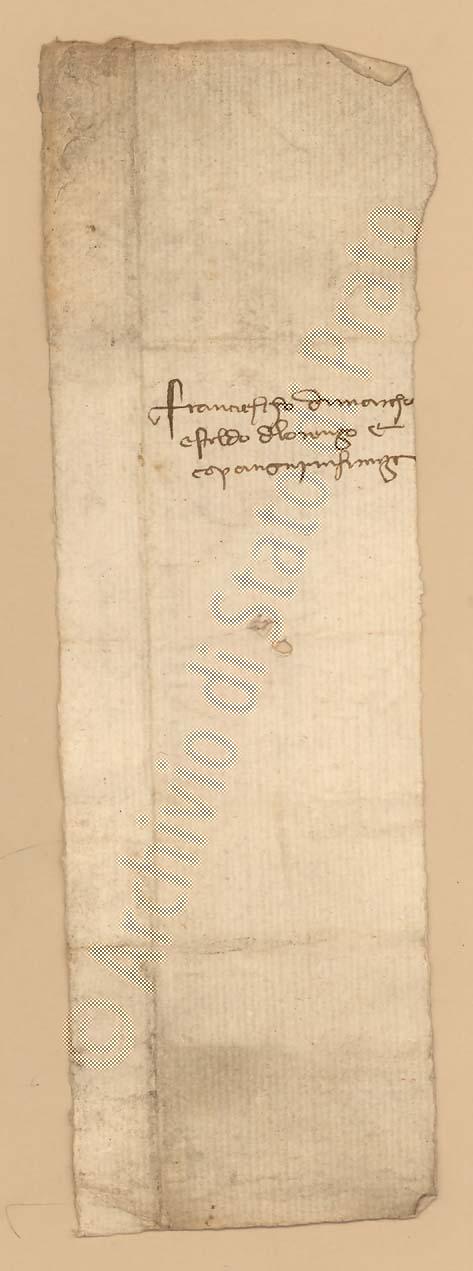 Franciescho di Marcho
e Stoldo di Lorenzo e
conpangni in Firenze
© Archivio di Stato di Prato